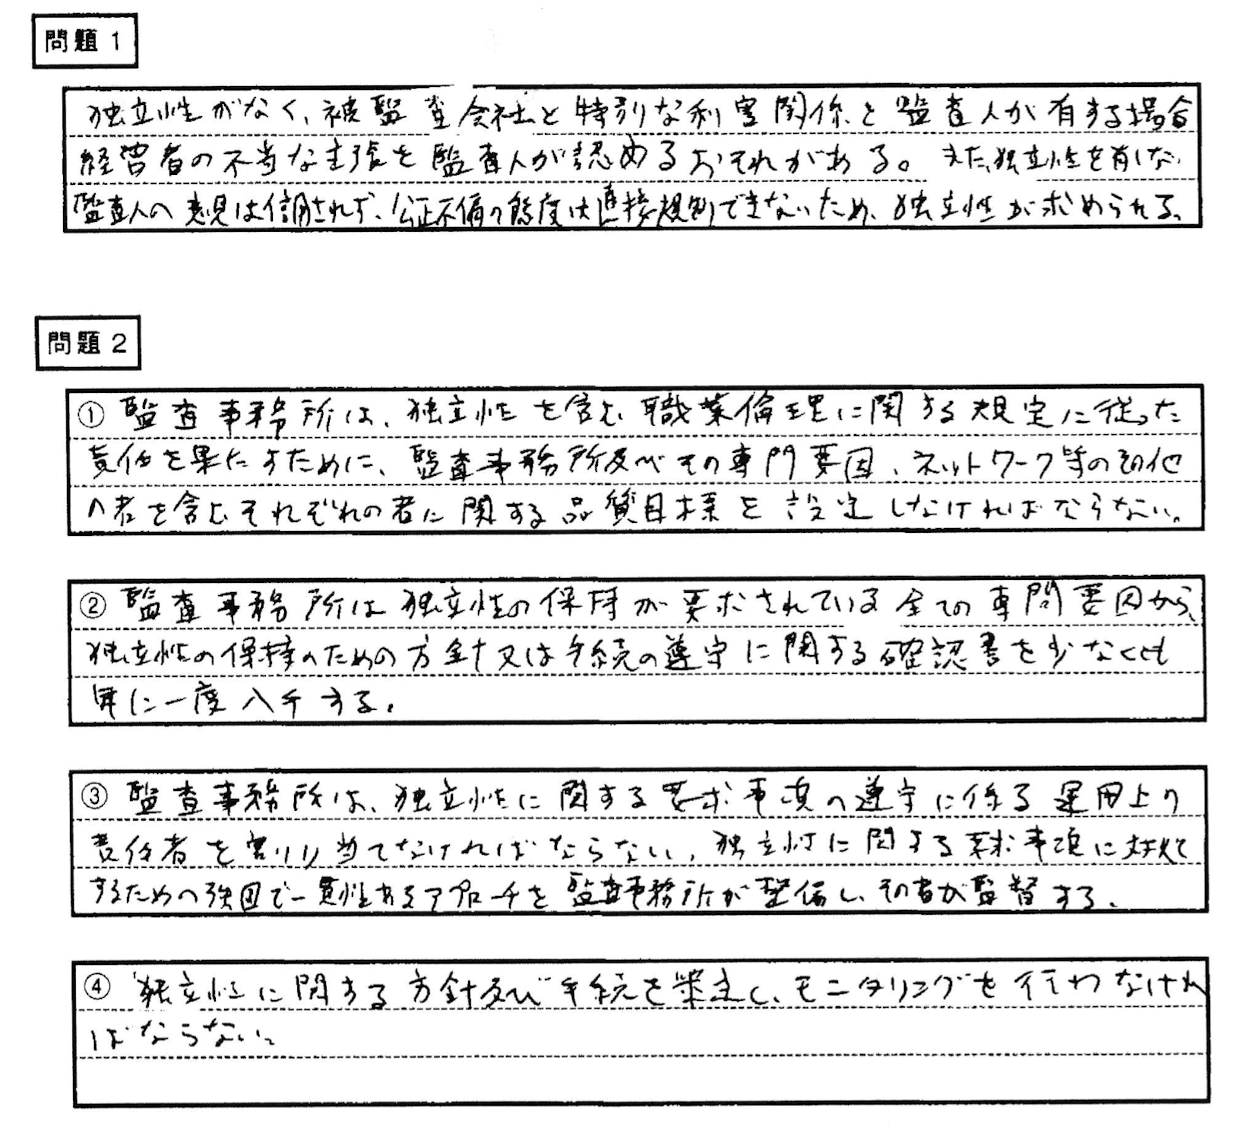 問題 1
独立性がなく、被監査会社と特別な利害関係を監査人が有する場合
経営者の不当な主張を監査人が認めるおそれがある。また、独立性を有しない
監査人の意見は信用されず、公正不偏の態度は直接規制できないため、独立性が求められる。
問題 2
① 監査事務所は、独立性を含む職業倫理に関する規定に従った
責任を果たすために、監査事務所及びその専門要因、ネットワーク等のその他
の者を含むそれぞれの者に関する品質目標を設定しなければならない。
② 監査事務所は独立性の保持が要求されている全ての専門要因から、
独立性の保持のための方針又は手続の遵守に関する確認書を少なくとも
年に一度入手する。
③ 監査事務所は、独立性に関する要求事項の遵守に係る運用上の
責任者を割り当てなければならない。独立性に関する要求事項に対処
するための強固で一貫性あるアプローチを監査事務所が整備し、その者が監督する。
④ 独立性に関する方針及び手続を策定し、モニタリングを行わなけれ
ばならない。